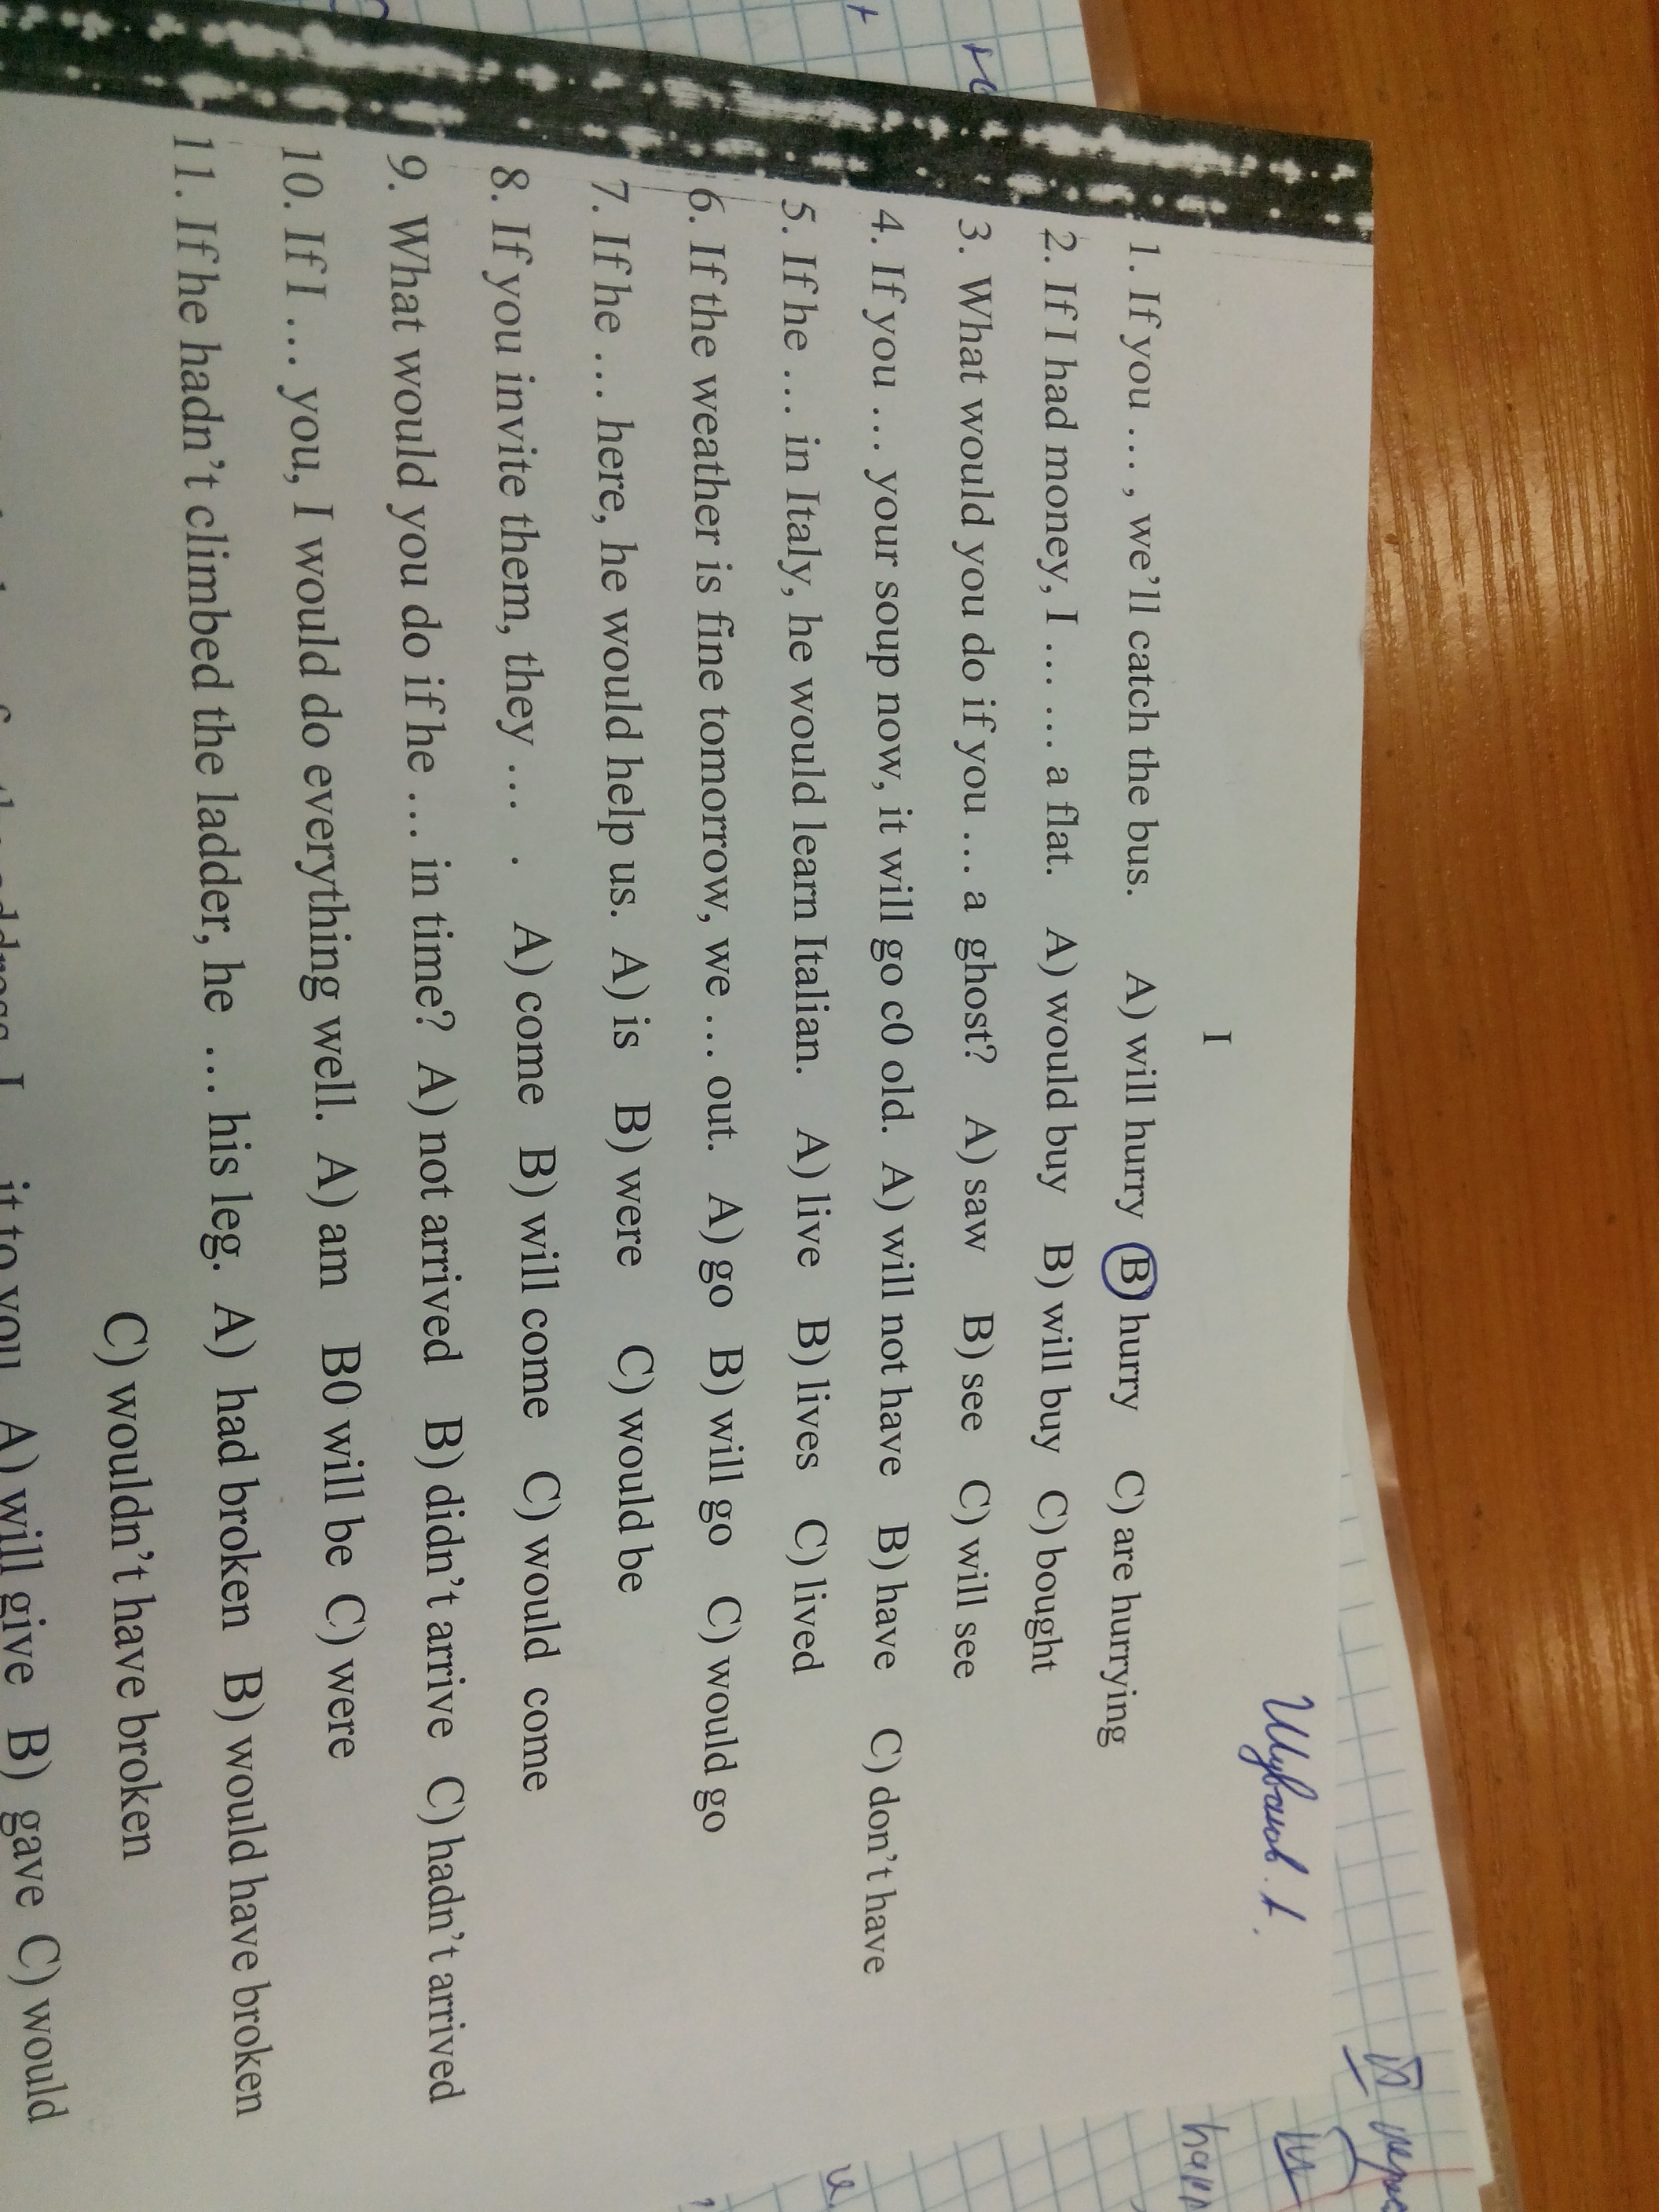 Шуванов. А.
I
1. If you … , we’ll catch the bus. A) will hurry B) hurry C) are hurrying
2. If I had money, I … … a flat. A) would buy B) will buy C) bought
3. What would you do if you … a ghost? A) saw B) see C) will see
4. If you … your soup now, it will go c0 old. A) will not have B) have C) don’t have
5. If he … in Italy, he would learn Italian. A) live B) lives C) lived
6. If the weather is fine tomorrow, we … out. A) go B) will go C) would go
7. If he … here, he would help us. A) is B) were C) would be
8. If you invite them, they … . A) come B) will come C) would come
9. What would you do if he … in time? A) not arrived B) didn’t arrive C) hadn’t arrived
10. If I … you, I would do everything well. A) am B0 will be C) were
11. If he hadn’t climbed the ladder, he … his leg. A) had broken B) would have broken
C) wouldn’t have broken
address, I it to you A) will give B) gave C) would